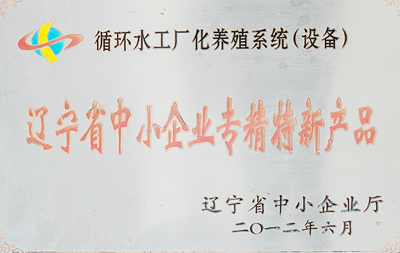 循环水工厂化养殖系统(设备)
辽宁省中小企业专精特新产品
辽宁省中小企业厅
二〇一二年六月